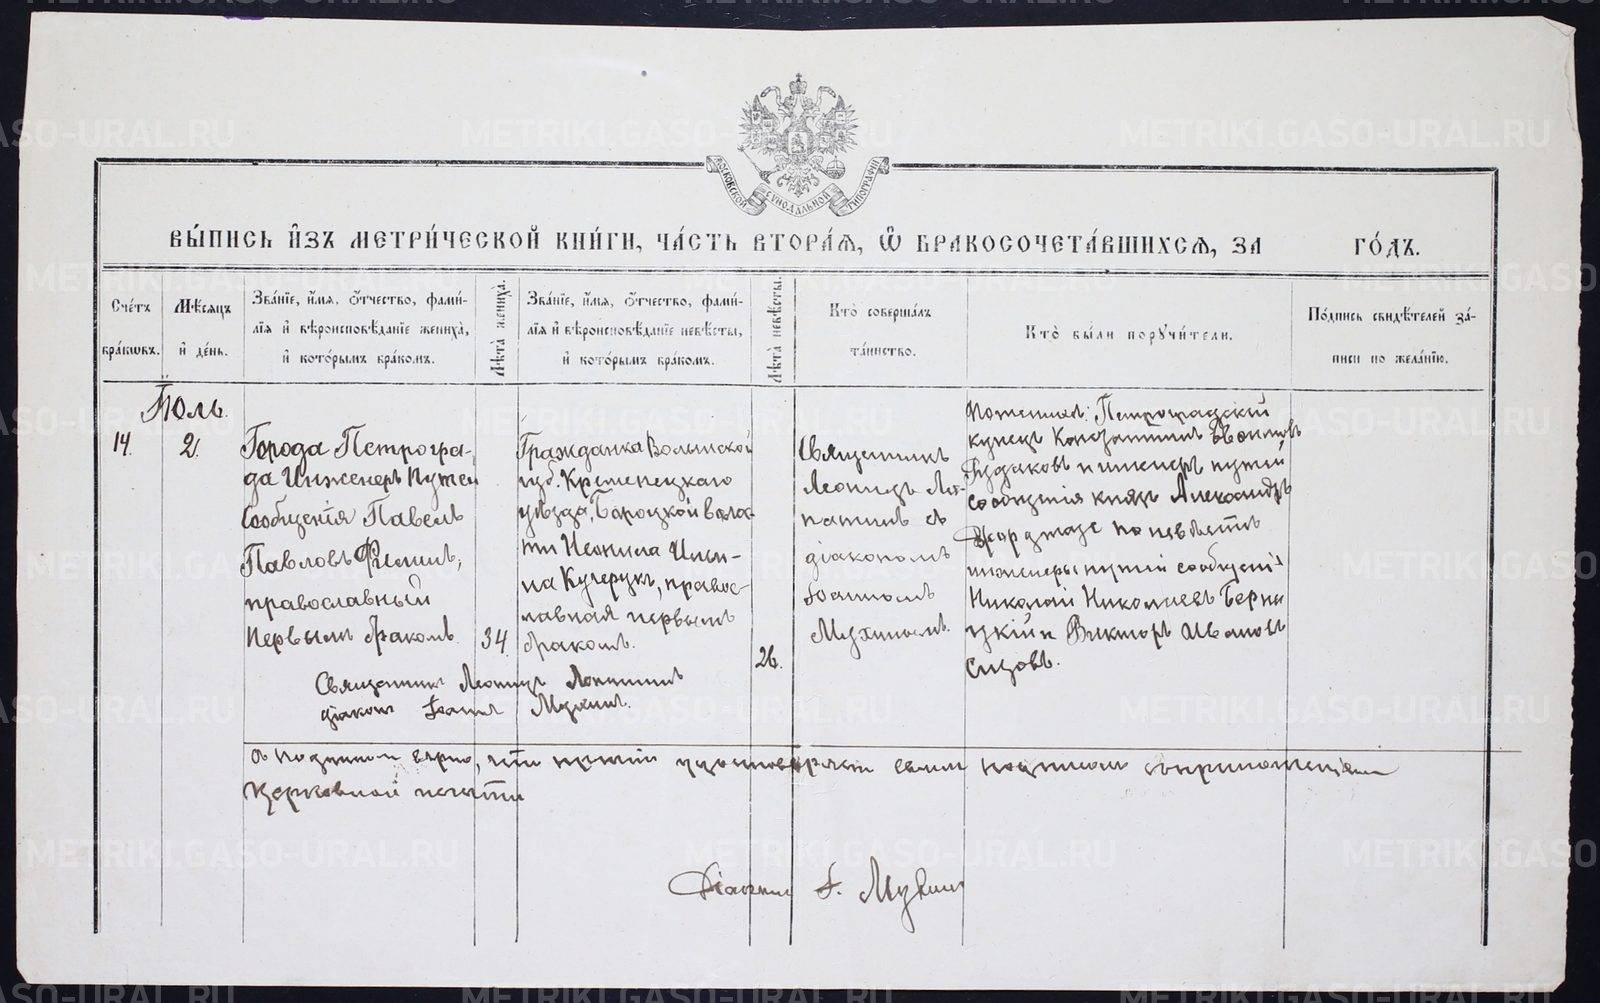 МОСКОВСКОЙ СѴНОДАЛЬНОЙ ТИПОГРАФІИ
ВЫ́ПИСЬ И҆ЗЪ МЕТРИ́ЧЕСКОЙ КНИ́ГИ, ЧА́СТЬ ВТОРА́Я, Ѽ БРАКОСОЧЕТА́ВШИХСЯ, ЗА ГО́ДЪ.
Сче́тъ бра́кѡвъ.
Мѣ́сяцъ и҆ де́нь.
Зва́нїе, и҆́мя, ѻ҆́тчество, фами́-
лїя и҆ вѣроисповѣ́данїе жениха̀,
и҆ кото́рымъ бра́комъ.
Лѣ́та жениха̀.
Зва́нїе, и҆́мя, ѻ҆́тчество, фами́-
лїя и҆ вѣроисповѣ́данїе невѣ́сты,
и҆ кото́рымъ бра́комъ.
Лѣ́та невѣ́сты.
Кто̀ соверша́лъ
та́инство.
Кто̀ бы́ли поручи́тели.
По́дпись свидѣ́телей за́-
писи по жела́нїю.
Іюль.
14.
2.
Города Петрогра-
да Инженеръ Путей
Сообщенія Павелъ
Павловъ
православный
первымъ бракомъ.
34.
Гражданка Волынской
губ. Кременецкаго
уѣзда, Борецкой воло-
сти Неонила
на Кучерукъ, правос-
лавная первымъ
бракомъ.
26.
Священникъ
Леонидъ Ло-
патинъ съ
діакономъ
Іоанномъ
Мухинымъ.
По женихѣ: Петроградскій
купецъ Константинъ
Рудаковъ и инженеръ путей
сообщенія князь Александръ
по невѣстѣ
инженеры путей сообщенія
Николай Николаевъ
и Викторъ Ивановъ
Сизовъ.
Священникъ Леонидъ Лопатинъ
діаконъ Іоаннъ Мухинъ.
Съ подлиннымъ вѣрно, что причтъ удостовѣряетъ своимъ подписомъ съ приложеніемъ
церковной печати
Діаконъ І. Мухинъ
METRIKI.GASO-URAL.RU